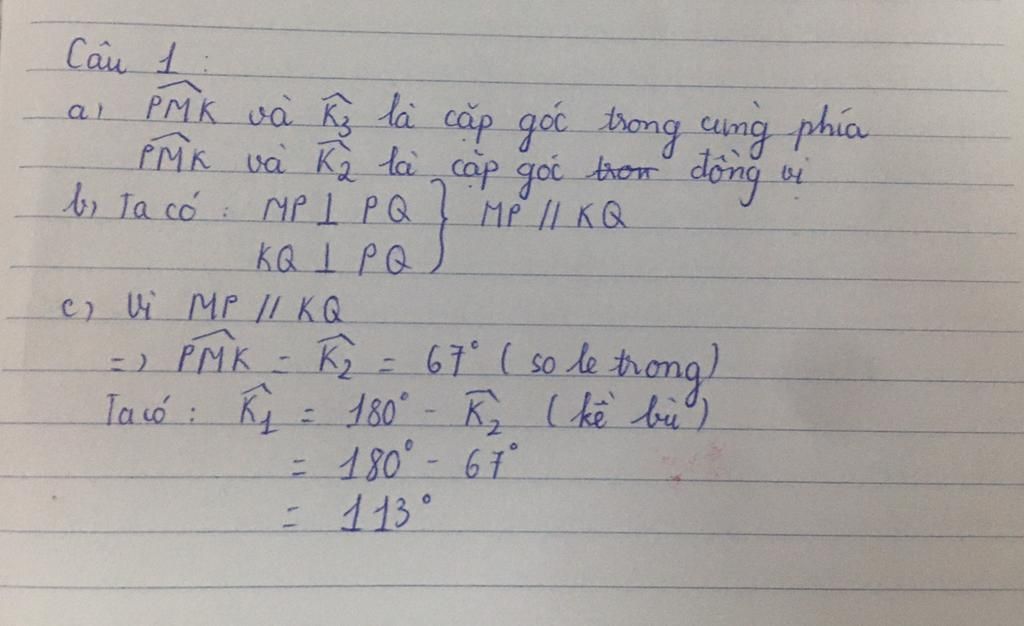 Câu 1 :
a, PMK và K3 là cặp góc trong cùng phía
PMK và K2 là cặp góc tron đồng vị
b, Ta có : MP ⊥ PQ } MP // KQ
KQ ⊥ PQ
c, Vì MP // KQ
=> PMK = K2 = 67° (so le trong)
Ta có : K1 = 180° - K2 (kề bù)
= 180° - 67°
= 113°